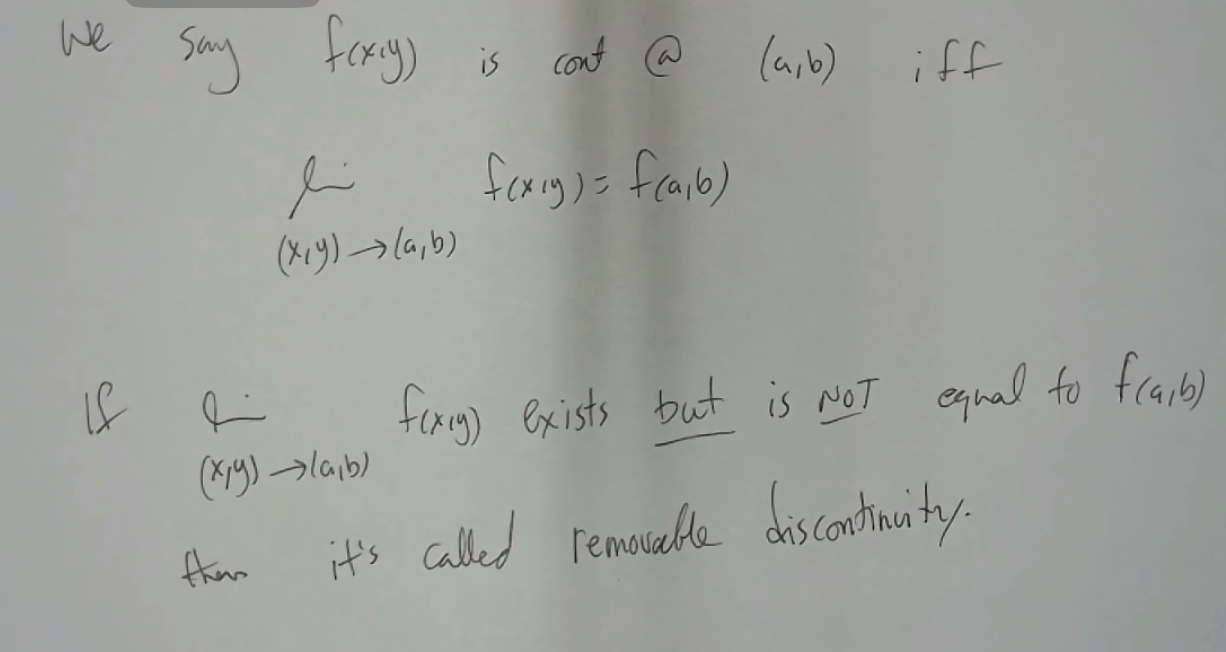 We say f(x,y) is cont @ (a,b) iff
lim f(x,y) = f(a,b)
(x,y)→(a,b)
If lim f(x,y) exists but is NOT equal to f(a,b)
(x,y)→(a,b)
then it's called removable discontinuity.